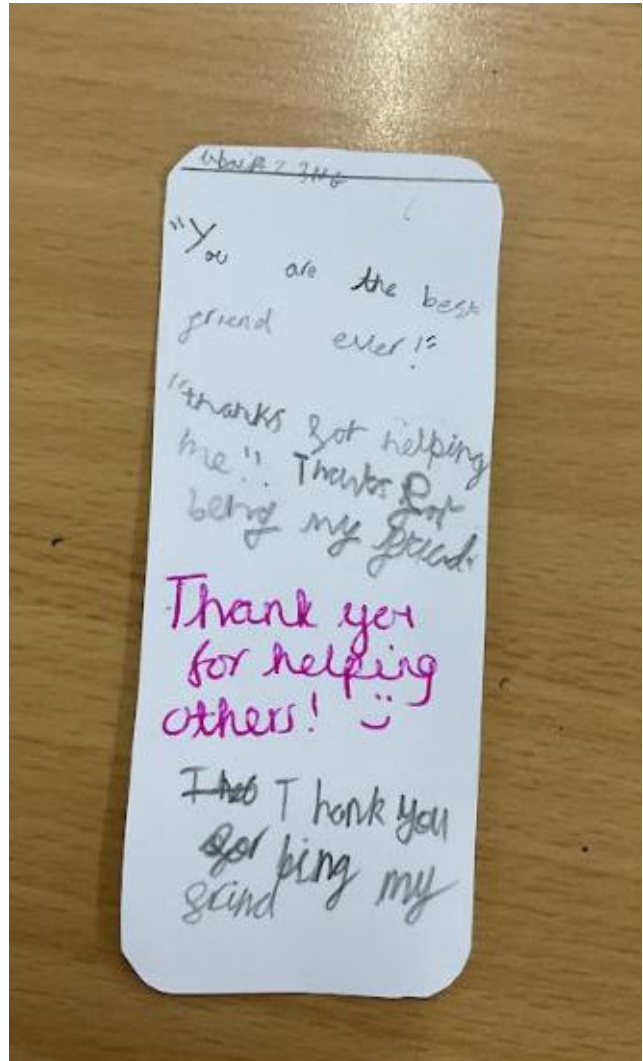 "You are the best
friend ever!"
"thanks for helping
me!! Thanks for
being my friend.
Thank you
for helping
others! :)
Thank you
for bing my
frind